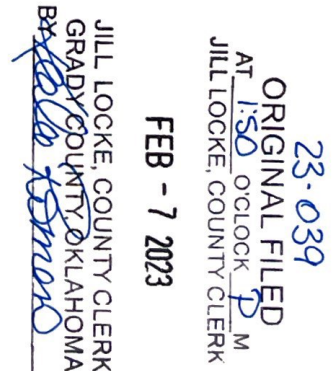 23-039
ORIGINAL FILED
AT 1:50 O'CLOCK P M
JILL LOCKE, COUNTY CLERK
FEB - 7 2023
JILL LOCKE, COUNTY CLERK
GRADY COUNTY, OKLAHOMA
BY